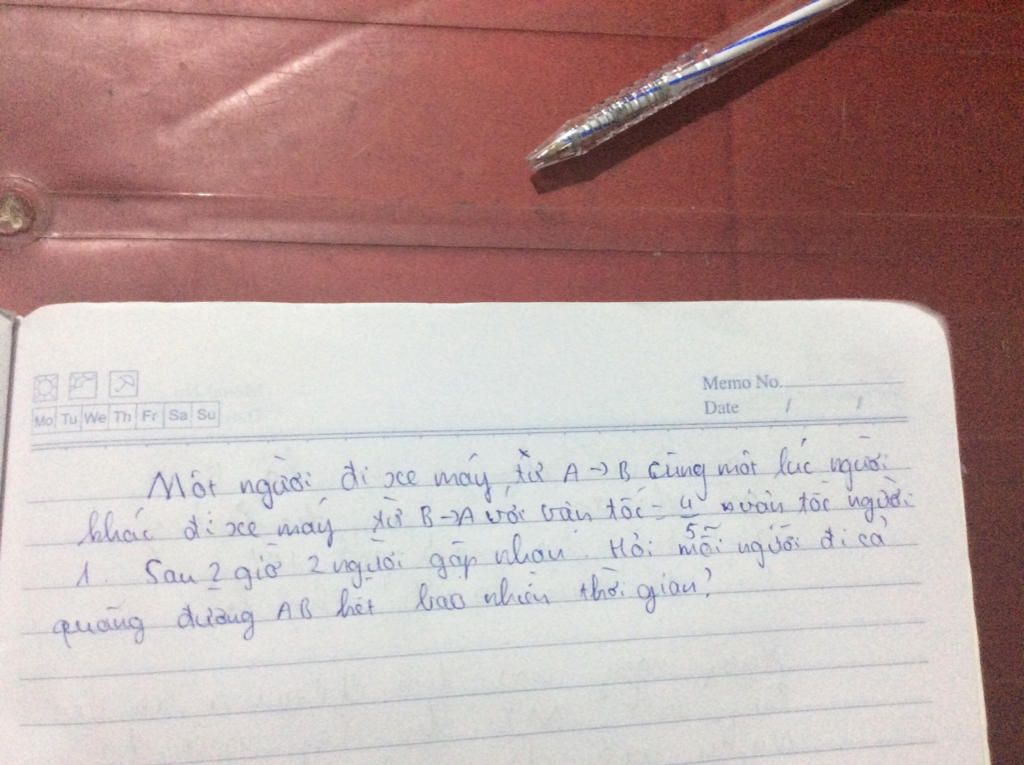 Memo No.
Mo Tu We Th Fr Sa Su
Date / /
Một người đi xe máy từ A → B cùng một lúc người
khác đi xe máy từ B → A với vận tốc = 4/5 vận tốc người
1. Sau 2 giờ 2 người gặp nhau. Hỏi mỗi người đi cả
quãng đường AB hết bao nhiêu thời gian?